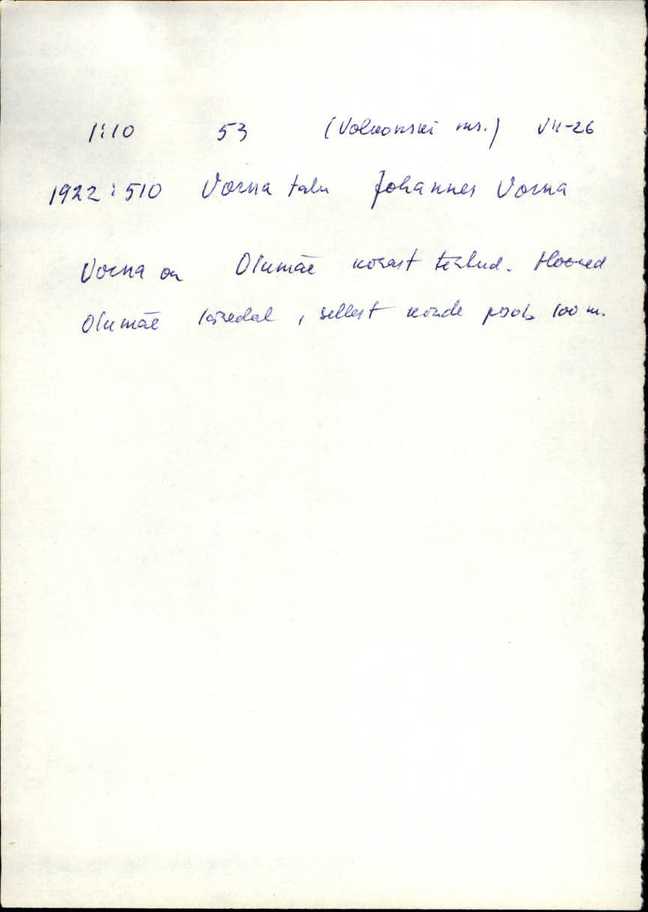 1:10 53 (Volkonski ms.) VII-26
1922:510 Vorna talu Johannes Vorna
Vorna on Olumäe kõrast tehtud. Hooned
Olumäe lähedal, sellest kirde pool 100 m.